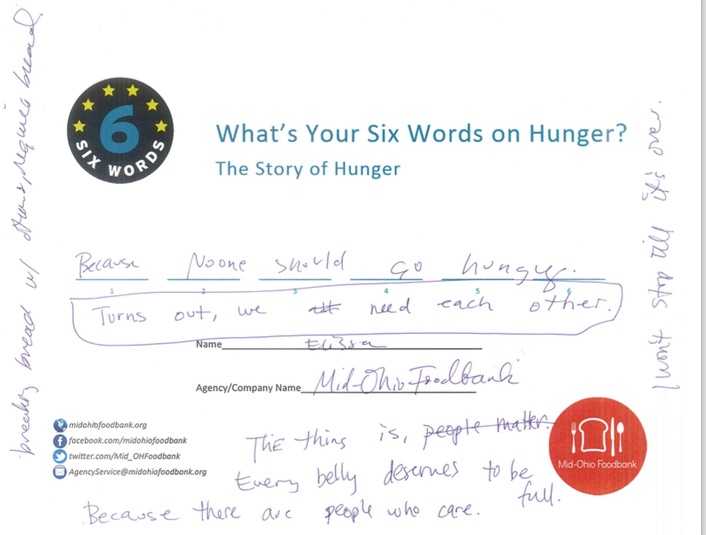 breaking bread w/ others, requires bread
6
SIX WORDS
What's Your Six Words on Hunger?
The Story of Hunger
I won't stop till it's over.
Because No one should go hungry.
1 2 3 4 5 6
Turns out, we need each other.
Name Elissa
Agency/Company Name Mid-Ohio Foodbank
midohiofoodbank.org
facebook.com/midohiofoodbank
twitter.com/Mid_OHFoodbank
AgencyService@midohiofoodbank.org
The thing is, people matter.
Every belly deserves to be
full.
Because there are people who care.
Mid-Ohio Foodbank